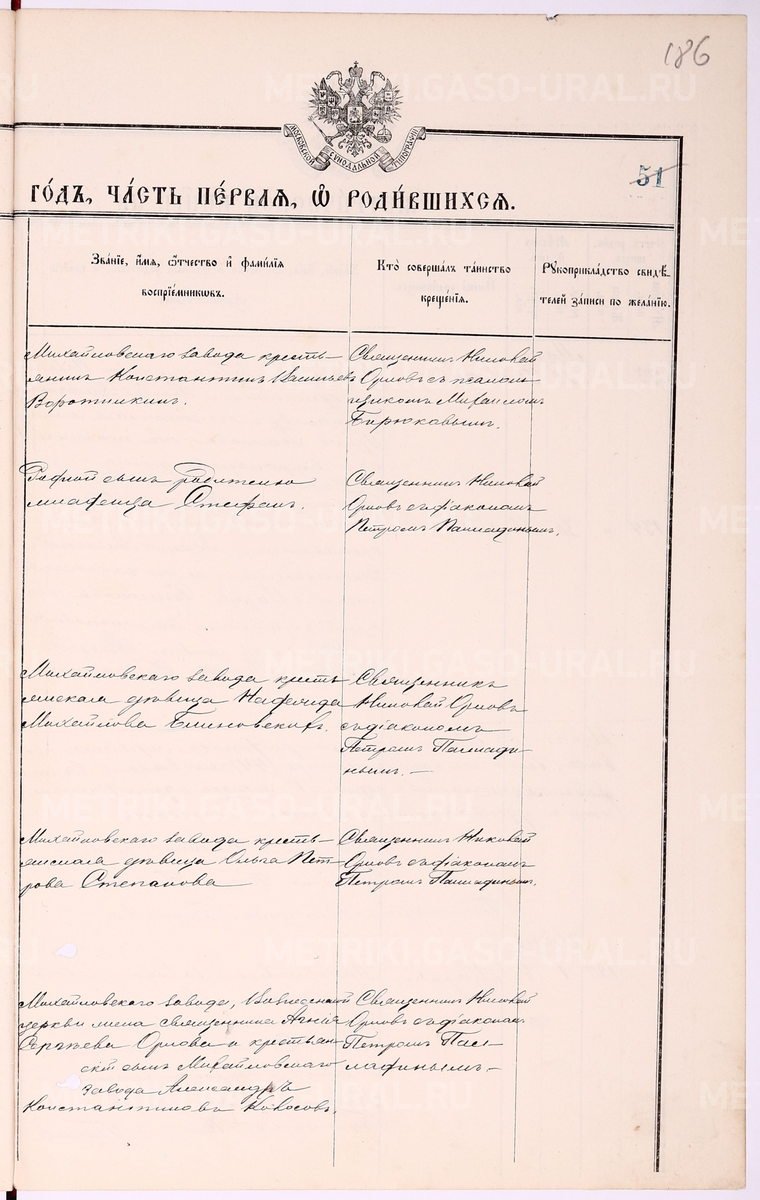 186
МОСКОВСКОЙ СѴНОДАЛЬНОЙ ТИПОГРАФІИ
51
ГО́ДЪ, ЧА́СТЬ ПЕ́РВАЯ, Ѡ҆ РОДИ́ВШИХСЯ.
Зва́нїе, и҆́мя, ѻ҆́тчество и҆ фами́лїя
воспрїе́мникѡвъ.
Кто̀ соверша́лъ та́инство
креще́нїя.
Рꙋкоприкла́дство свидѣ́-
телей за́писи по жела́нїю.
Михайловскаго завода кресть-
янинъ Константинъ Васильевъ
Воротилкинъ.
Священникъ Николай
Орловъ съ псалом-
щикомъ Михаиломъ
Бирюковымъ.
Родной сынъ родителю
младенца Стефанъ.
Священникъ Николай
Орловъ съ діакономъ
Петромъ Палладинымъ.
Михайловскаго завода кресть-
янская дѣвица Надежда
Михайлова Блиновсковъ.
Священникъ
Николай Орловъ
съ діакономъ
Петромъ Паллади-
нымъ. —
Михайловскаго завода кресть-
янская дѣвица Ольга Пет-
рова Степанова
Священникъ Николай
Орловъ съ діакономъ
Петромъ Палладинымъ.
Михайловскаго завода, Введенской
церкви жена священника Агнія
Сергѣева Орлова и крестьян-
скій сынъ Михайловскаго
завода Александръ
Константиновъ Кокосовъ.
Священникъ Николай
Орловъ съ діакономъ
Петромъ Пал-
ладинымъ. —
METRIKI.GASO-URAL.RU